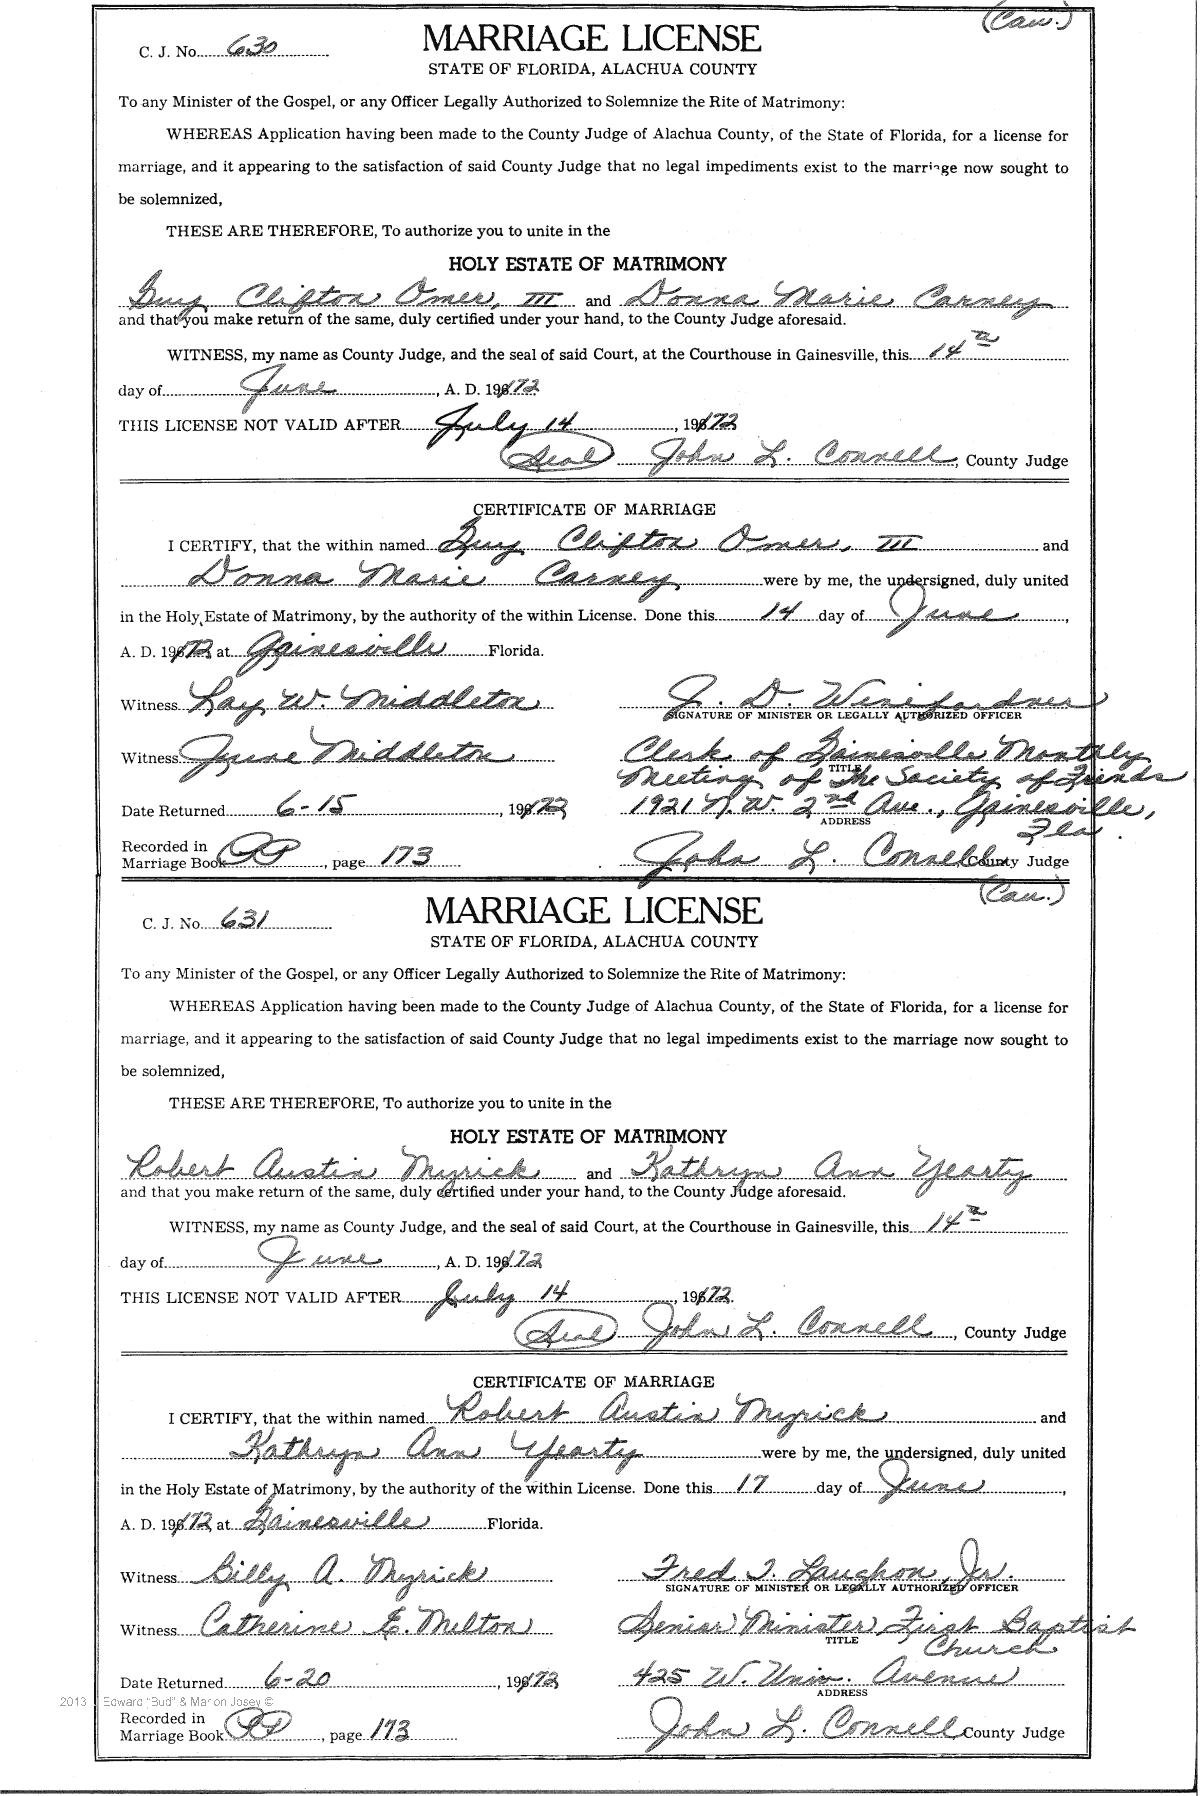 (Cau.)
C. J. No. 630
MARRIAGE LICENSE
STATE OF FLORIDA, ALACHUA COUNTY
To any Minister of the Gospel, or any Officer Legally Authorized to Solemnize the Rite of Matrimony:
WHEREAS Application having been made to the County Judge of Alachua County, of the State of Florida, for a license for
marriage, and it appearing to the satisfaction of said County Judge that no legal impediments exist to the marriage now sought to
be solemnized,
THESE ARE THEREFORE, To authorize you to unite in the
HOLY ESTATE OF MATRIMONY
Guy Clifton Omer, III and Donna Marie Carney
and that you make return of the same, duly certified under your hand, to the County Judge aforesaid.
WITNESS, my name as County Judge, and the seal of said Court, at the Courthouse in Gainesville, this 14th
day of June, A. D. 1972
THIS LICENSE NOT VALID AFTER July 14, 1972
(Seal) John L. Connell, County Judge
CERTIFICATE OF MARRIAGE
I CERTIFY, that the within named Guy Clifton Omer, III and
Donna Marie Carney were by me, the undersigned, duly united
in the Holy Estate of Matrimony, by the authority of the within License. Done this 14 day of June,
A. D. 1972, at Gainesville Florida.
Witness Ray W. Middleton J. D. Winefordner
SIGNATURE OF MINISTER OR LEGALLY AUTHORIZED OFFICER
Witness June Middleton Clerk of Gainesville Monthly
TITLE
Meeting of the Society of Friends
Date Returned 6-15, 1972 1921 N.W. 2nd Ave., Gainesville,
ADDRESS
Fla.
Recorded in
Marriage Book PP, page 173 John L. Connell County Judge
(Cau.)
C. J. No. 631
MARRIAGE LICENSE
STATE OF FLORIDA, ALACHUA COUNTY
To any Minister of the Gospel, or any Officer Legally Authorized to Solemnize the Rite of Matrimony:
WHEREAS Application having been made to the County Judge of Alachua County, of the State of Florida, for a license for
marriage, and it appearing to the satisfaction of said County Judge that no legal impediments exist to the marriage now sought to
be solemnized,
THESE ARE THEREFORE, To authorize you to unite in the
HOLY ESTATE OF MATRIMONY
Robert Austin Myrick and Kathryn Ann Yearty
and that you make return of the same, duly certified under your hand, to the County Judge aforesaid.
WITNESS, my name as County Judge, and the seal of said Court, at the Courthouse in Gainesville, this 14th
day of June, A. D. 1972
THIS LICENSE NOT VALID AFTER July 14, 1972.
(Seal) John L. Connell, County Judge
CERTIFICATE OF MARRIAGE
I CERTIFY, that the within named Robert Austin Myrick and
Kathryn Ann Yearty were by me, the undersigned, duly united
in the Holy Estate of Matrimony, by the authority of the within License. Done this 17 day of June,
A. D. 1972, at Gainesville Florida.
Witness Billy A. Myrick Fred T. Laughon, Jr.
SIGNATURE OF MINISTER OR LEGALLY AUTHORIZED OFFICER
Witness Catherine E. Melton Senior Minister, First Baptist
TITLE
Church
Date Returned 6-20, 1972 425 W. Univ. Avenue
ADDRESS
2013 Edward "Bud" & Marion Josey ©
Recorded in
Marriage Book PP, page 173 John L. Connell County Judge